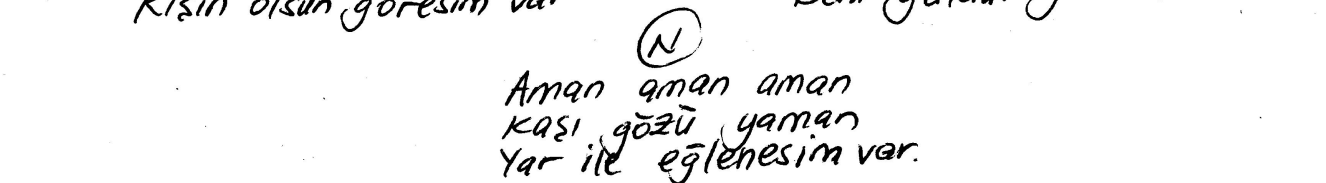 Kışın olsun göresim var
N
Aman aman aman
Kaşı gözü yaman
Yar ile eğlenesim var.